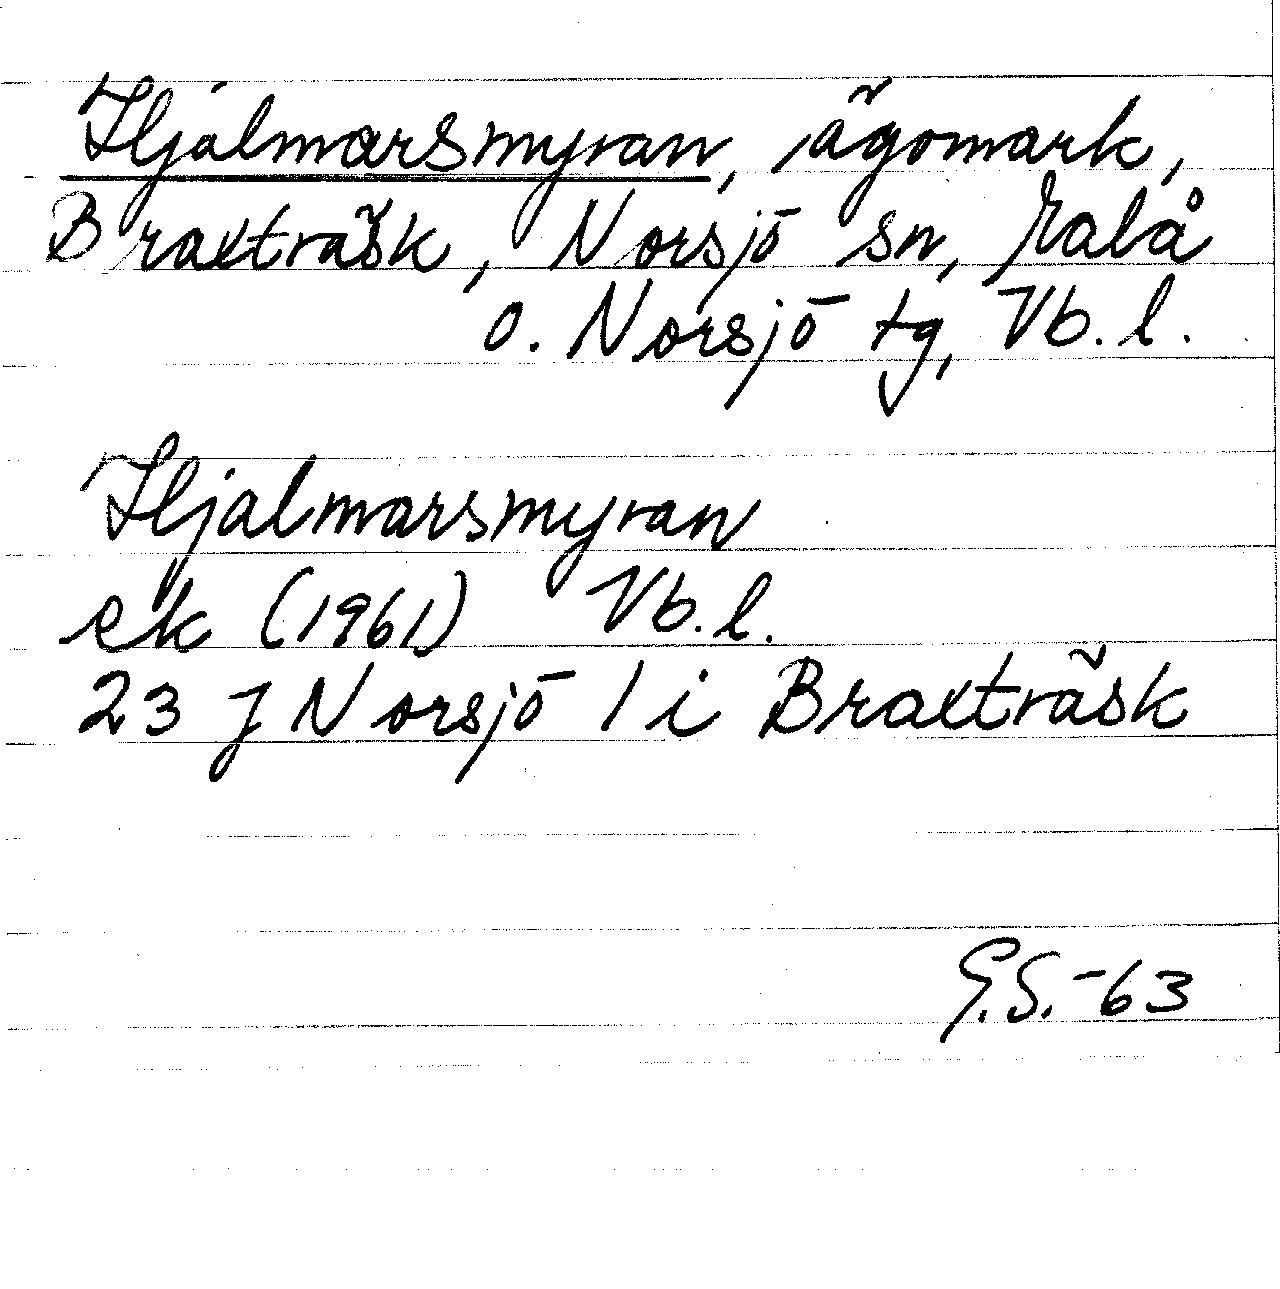 Hjalmarsmyran, ägomark,
Braxträsk, Norsjö sn, Malå
o. Norsjö tg, Vb. l.
Hjalmarsmyran
ek (1961) Vb. l.
23 J Norsjö 1 i Braxträsk
G.S.-63